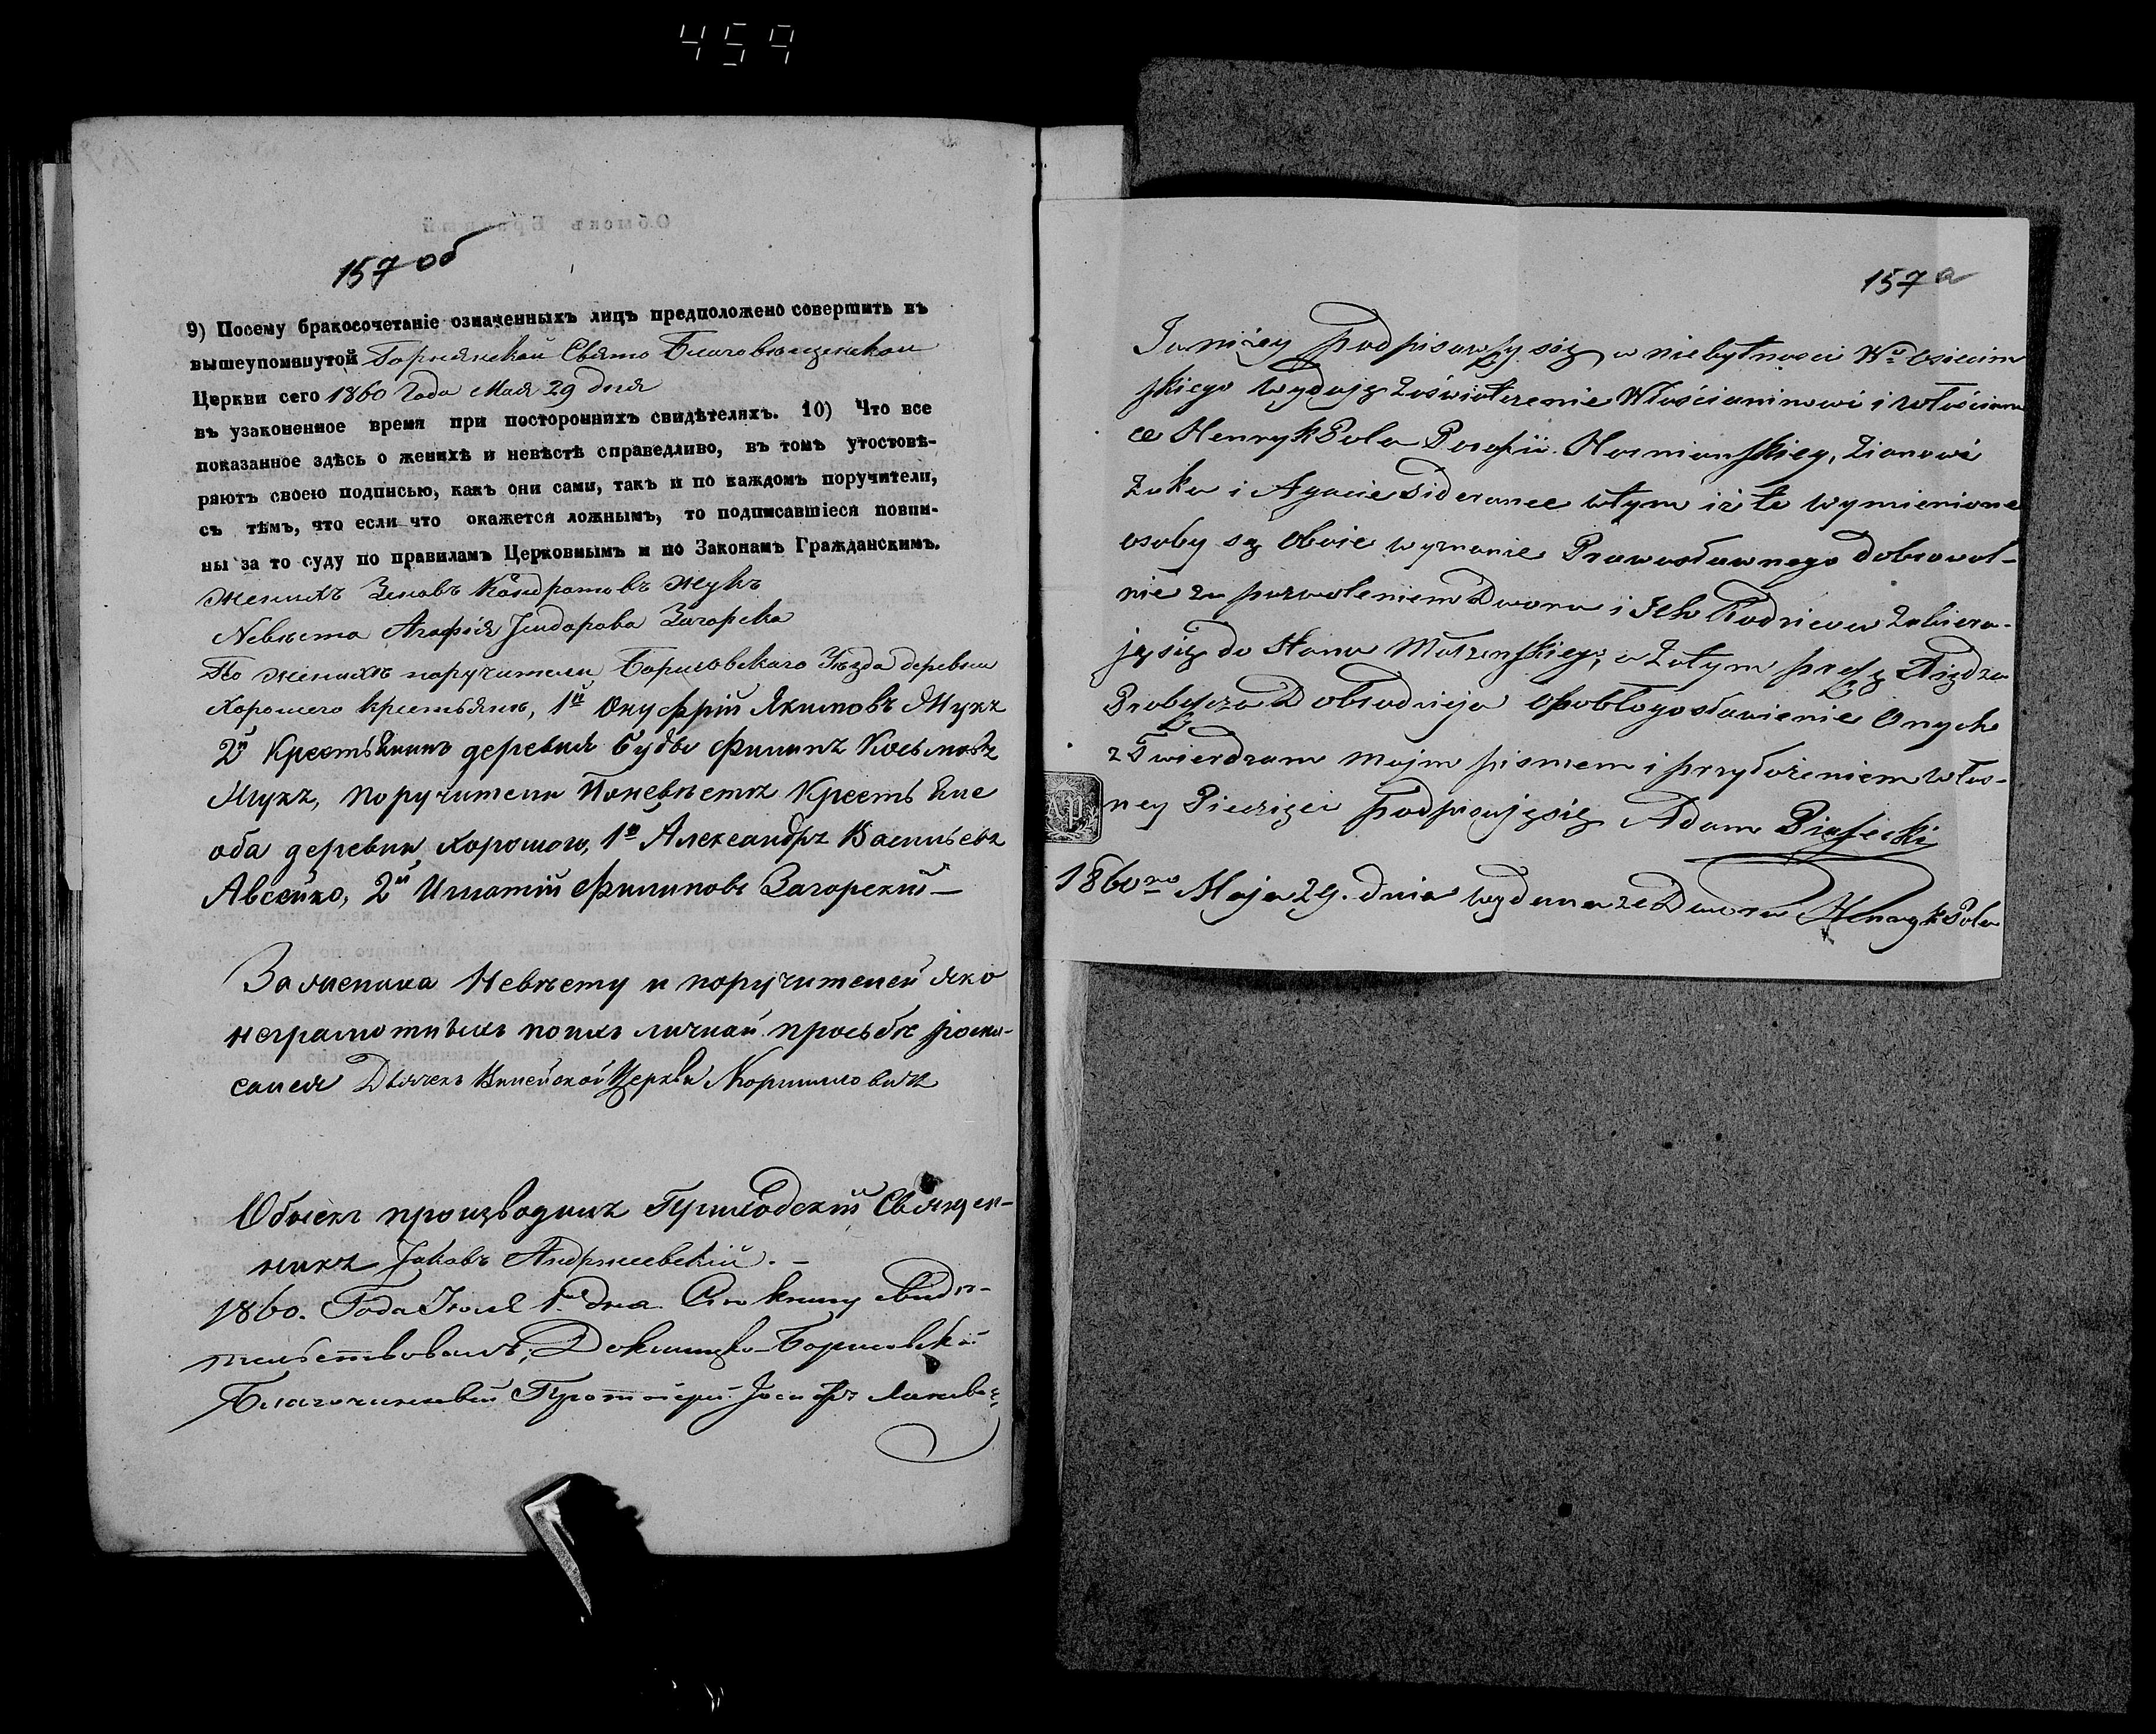 459
157 об
9) Посему бракосочетаніе означенныхъ лицъ предположено совершить въ
вышеупомянутой Горнянской Свято Благовещенской
Церкви сего 1860 Года Мая 29 дня
въ узаконенное время при постороннихъ свидѣтеляхъ. 10) Что все
показанное здѣсь о женихѣ и невѣстѣ справедливо, въ томъ утостовѣ-
ряютъ своею подписью, какъ они сами, такъ и по каждомъ поручители,
съ тѣмъ, что если что окажется ложнымъ, то подписавшіеся повин-
ны за то суду по правиламъ Церковнымъ и по Законамъ Гражданскимъ.
Женихъ Зеновъ Кондратовъ Жукъ
Невѣста Агафія Загорска
По женихѣ поручители Борисовскаго Уѣзда деревни
Хорошего крестьяне, 1й Онуфрій Якимовъ Жукъ
2й Крестьянинъ деревни Буды Филипъ Косьмовъ
Жукъ, поручители Поневѣстѣ Крестьяне
оба деревни Хорошого, 1й Александръ Васильевъ
Авсейко, 2й Игнатій Филиповъ Загорскій –
За жениха Невѣсту и поручителей яко
неграмотныхъ поихъ личной просьбѣ роспи-
сался Дьячекъ Церкви
Обыскъ производилъ Приходскій Священ-
никъ Іаковъ Андржеевскій. –
1860. Года Іюля 1 дня Сію книгу Свидѣ-
тельствовалъ, Докшицко-Борисовскій
Благочинный Протоіерей Іосифъ
157 а
Ja niżey podpisawszy się w niebytności Wo Osiecim
skiego wydaję Zaświatczenie Włościaninowi i włościan
ce Henrykpola Parafii, Zianowi
Żuku i Agacie wtym iż te wymienione
osoby są oboje wyznanie Prawosławnego dobrowol-
nie za pozwoleniem Dworu i Ich Rodziców zabiera-
ją się do Stanu Małżeńskiego, a Zatym proszę Xiędza
Proboszcza Dobrodzieja opobłogosławienie Onych
z Twierdzam mojm pismem i przyłożeniem włas-
ney Pieczięci podpisuję się Adam Piasecki
1860 no Maja 29. dnia wydana ze Dworu Henrykpola